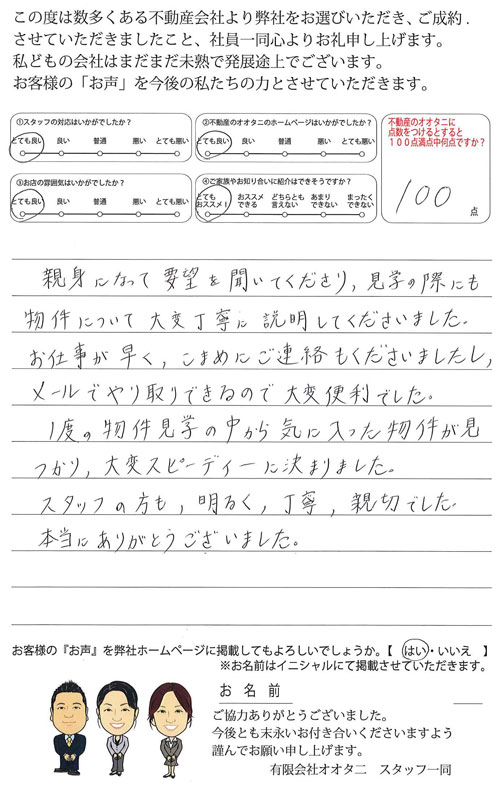 この度は数多くある不動産会社より弊社をお選びいただき、ご成約.
させていただきましたこと、社員一同心よりお礼申し上げます。
私どもの会社はまだまだ未熟で発展途上でございます。
お客様の「お声」を今後の私たちの力とさせていただきます。
①スタッフの対応はいかがでしたか？
とても良い 良い 普通 悪い とても悪い
②不動産のオオタニのホームページはいかがでしたか？
とても良い 良い 普通 悪い とても悪い
③お店の雰囲気はいかがでしたか？
とても良い 良い 普通 悪い とても悪い
④ご家族やお知り合いに紹介はできそうですか？
とても おススメ どちらとも あまり まったく
おススメ！ できる 言えない できない できない
不動産のオオタニに
点数をつけるとすると
１００点満点中何点ですか？
100
点
親身になって要望を聞いてくださり,見学の際にも
物件について大変丁寧に説明してくださいました.
お仕事が早く,こまめにご連絡もくださいましたし,
メールでやり取りできるので大変便利でした。
1度の物件見学の中から気に入った物件が見
つかり,大変スピーディーに決まりました。
スタッフの方も,明るく,丁寧,親切でした.
本当にありがとうございました。
お客様の『お声』を弊社ホームページに掲載してもよろしいでしょうか。【 はい・いいえ 】
※お名前はイニシャルにて掲載させていただきます。
お 名 前
ご協力ありがとうございました。
今後とも末永いお付き合いくださいますよう
謹んでお願い申し上げます。
有限会社オオタニ スタッフ一同